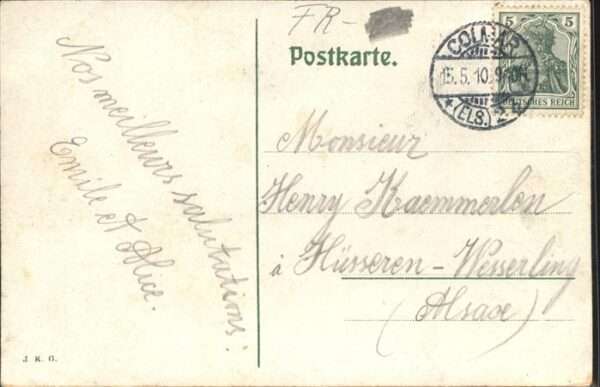 FR-
Postkarte.
5 5
DEUTSCHES REICH
COLMAR
15.5.10.9-10V
★(ELS.)2★
Nos meilleurs salutations:
Emile et Alice.
Monsieur
Henry Kaemmerlen
à Hüsseren-Wesserling
(Alsace)
J K. G.